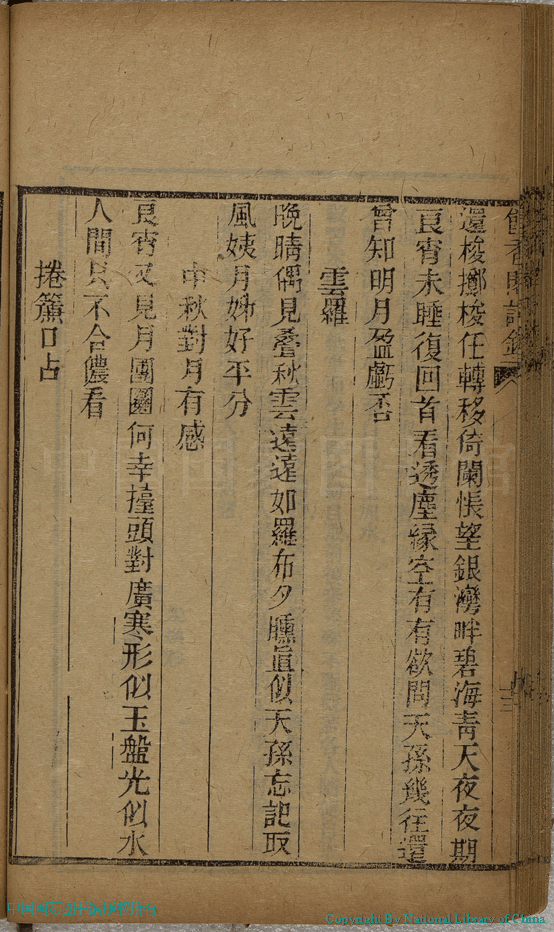 還梭擲梭任轉移倚闌悵望銀灣畔碧海青天夜夜期
良宵未睡復回首看透塵緣空有有欲問天孫幾往還
曾知明月盈虧否
雲羅
晚晴偶見疊秋雲遠遠如羅布夕曛眞似天孫忘記取
風姨月姊好平分
中秋對月有感
良宵又見月團圞何幸擡頭對廣寒形似玉盤光似水
人間只不合儂看
捲簾口占
Copyright By National Library of China